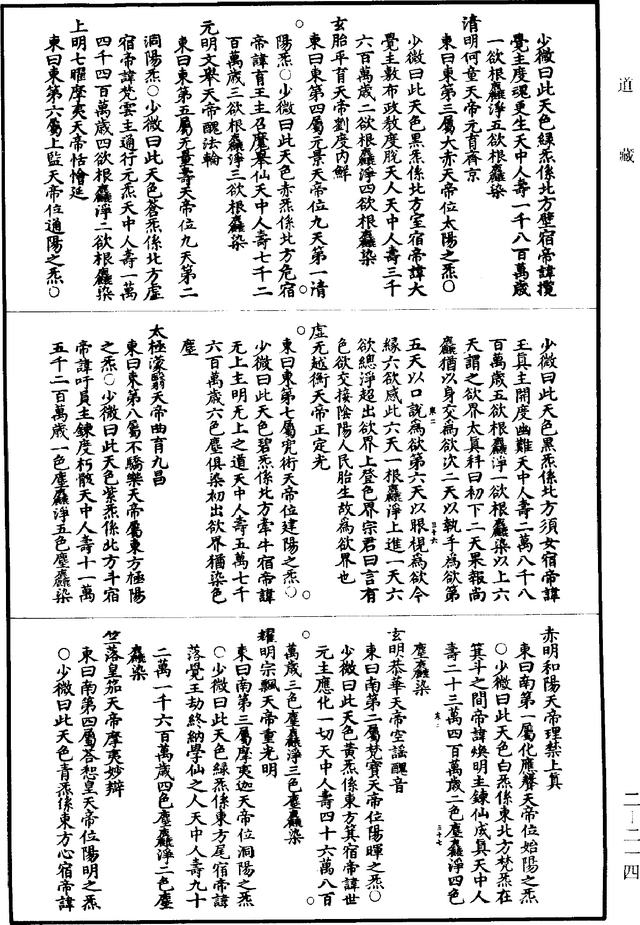 道藏
少微曰此天色綠炁係北方壁宿帝諱攬
覺主度魂更生天中人壽一千八百萬歲
一欲根麤淨五欲根麤染
清明何童天帝元育齊京
東曰東第三屬大赤天帝位太陽之炁○
少微曰此天色黑炁係北方室宿帝諱大
覺主敷布政教度脫天人天中人壽三千
六百萬歲二欲根麤淨四欲根麤染
玄胎平育天帝劉度內鮮
東曰東第四屬元景天帝位九天第一清
陽炁○少微曰此天色赤炁係北方危宿
帝諱育王主召魔舉仙天中人壽七千二
百萬歲三欲根麤淨三欲根麤染
元明文舉天帝醜法輪
東曰東第五屬元量壽天帝位九天第二
洞陽炁○少微曰此天色蒼炁係北方虛
宿帝諱梵雲主通行元炁天中人壽一萬
四千四百萬歲四欲根麤淨二欲根麤染
上明七曜摩夷天帝恬憎延
東曰東第六屬上監天帝位通陽之炁○
少微曰此天色黑炁係北方須女宿帝諱
王真主開度幽難天中人壽二萬八千八
百萬歲五欲根麤淨一欲根麤染以上六
天謂之欲界太真科曰初下二天果報尚
麤猶以身交為欲次二天以執手為欲第
五天以口說為欲第六天以眼視為欲今
緣六欲感此六天一根麤淨上進一天六
欲總淨超出欲界上登色界宗君曰言有
色欲交接陰陽人民胎生故為欲界也
虛无越衡天帝正定光
東曰東第七屬兜術天帝位建陽之炁○
少微曰此天色碧炁係北方牽牛宿帝諱
无上主明无上之道天中人壽五萬七千
六百萬歲六色塵俱染初出欲界猶染色
塵
太極濛翳天帝曲育九昌
東曰東第八屬不驕樂天帝屬東方極陽
之炁○少微曰此天色紫炁係北方斗宿
帝諱吁員主鍊度朽骸天中人壽十一萬
五千二百萬歲一色塵麤淨五色塵麤染
赤明和陽天帝理禁上真
東曰南第一屬化應聲天帝位始陽之炁
○少微曰此天色白炁係東北方梵炁在
箕斗之間帝諱煥明主鍊仙成真天中人
壽二十三萬四百萬歲二色塵麤淨四色
塵麤染
玄明恭華天帝空謠醜音
東曰南第二屬梵寶天帝位陽暉之炁○
少微曰此天色黃炁係東方箕宿帝諱世
元主應化一切天中人壽四十六萬八百
萬歲三色塵麤淨三色塵麤染
耀明宗飄天帝重光明
東曰南第三屬摩夷迦天帝位洞陽之炁
○少微曰此天色綠炁係東方尾宿帝諱
落覺王劫終納學仙之人天中人壽九十
二萬一千六百萬歲四色塵麤淨二色塵
麤染
竺落皇笳天帝摩夷妙辯
東曰南第四屬荅恕皇天帝位陽明之炁
○少微曰此天色青炁係東方心宿帝諱
二-二一四